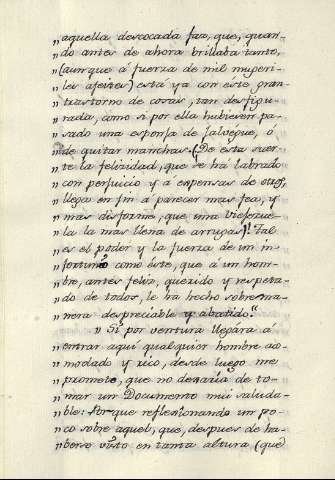 „aquella descocada faz, que, quan-
„do antes de ahora brillaba tanto,
„(aunque á fuerza de mil mugeri-
„les afeites) está ya con este gran
„trastorno de cosas, tan desfigu-
„rada, como si por ella hubieren pa-
„sado una esponja de jalvegue, ó
„de quitar manchas. (De esta suer-
„te la felizidad, que se há labrado
„con perjuicio y á expensas de otros,
„llega en fin á parecer mas fea, y
„mas disforme, que una viejezue-
„la la mas llena de arrugas)! Tal
„es el poder y la fuerza de un in-
„fortunio como éste, que á un hom-
„bre, antes feliz, querido y respeta-
„do de todos, le ha hecho sobrema-
„nera despreciable y abatido."
„Si por ventura llegára á
entrar aquí qualquier hombre aco-
modado y rico, desde luego me
prometo, que no dexaría de to-
mar un Documento mui saluda-
ble: Porque reflexîonando un po-
co sobre aquel, que, despues de ha-
berse visto en tanta altura (que